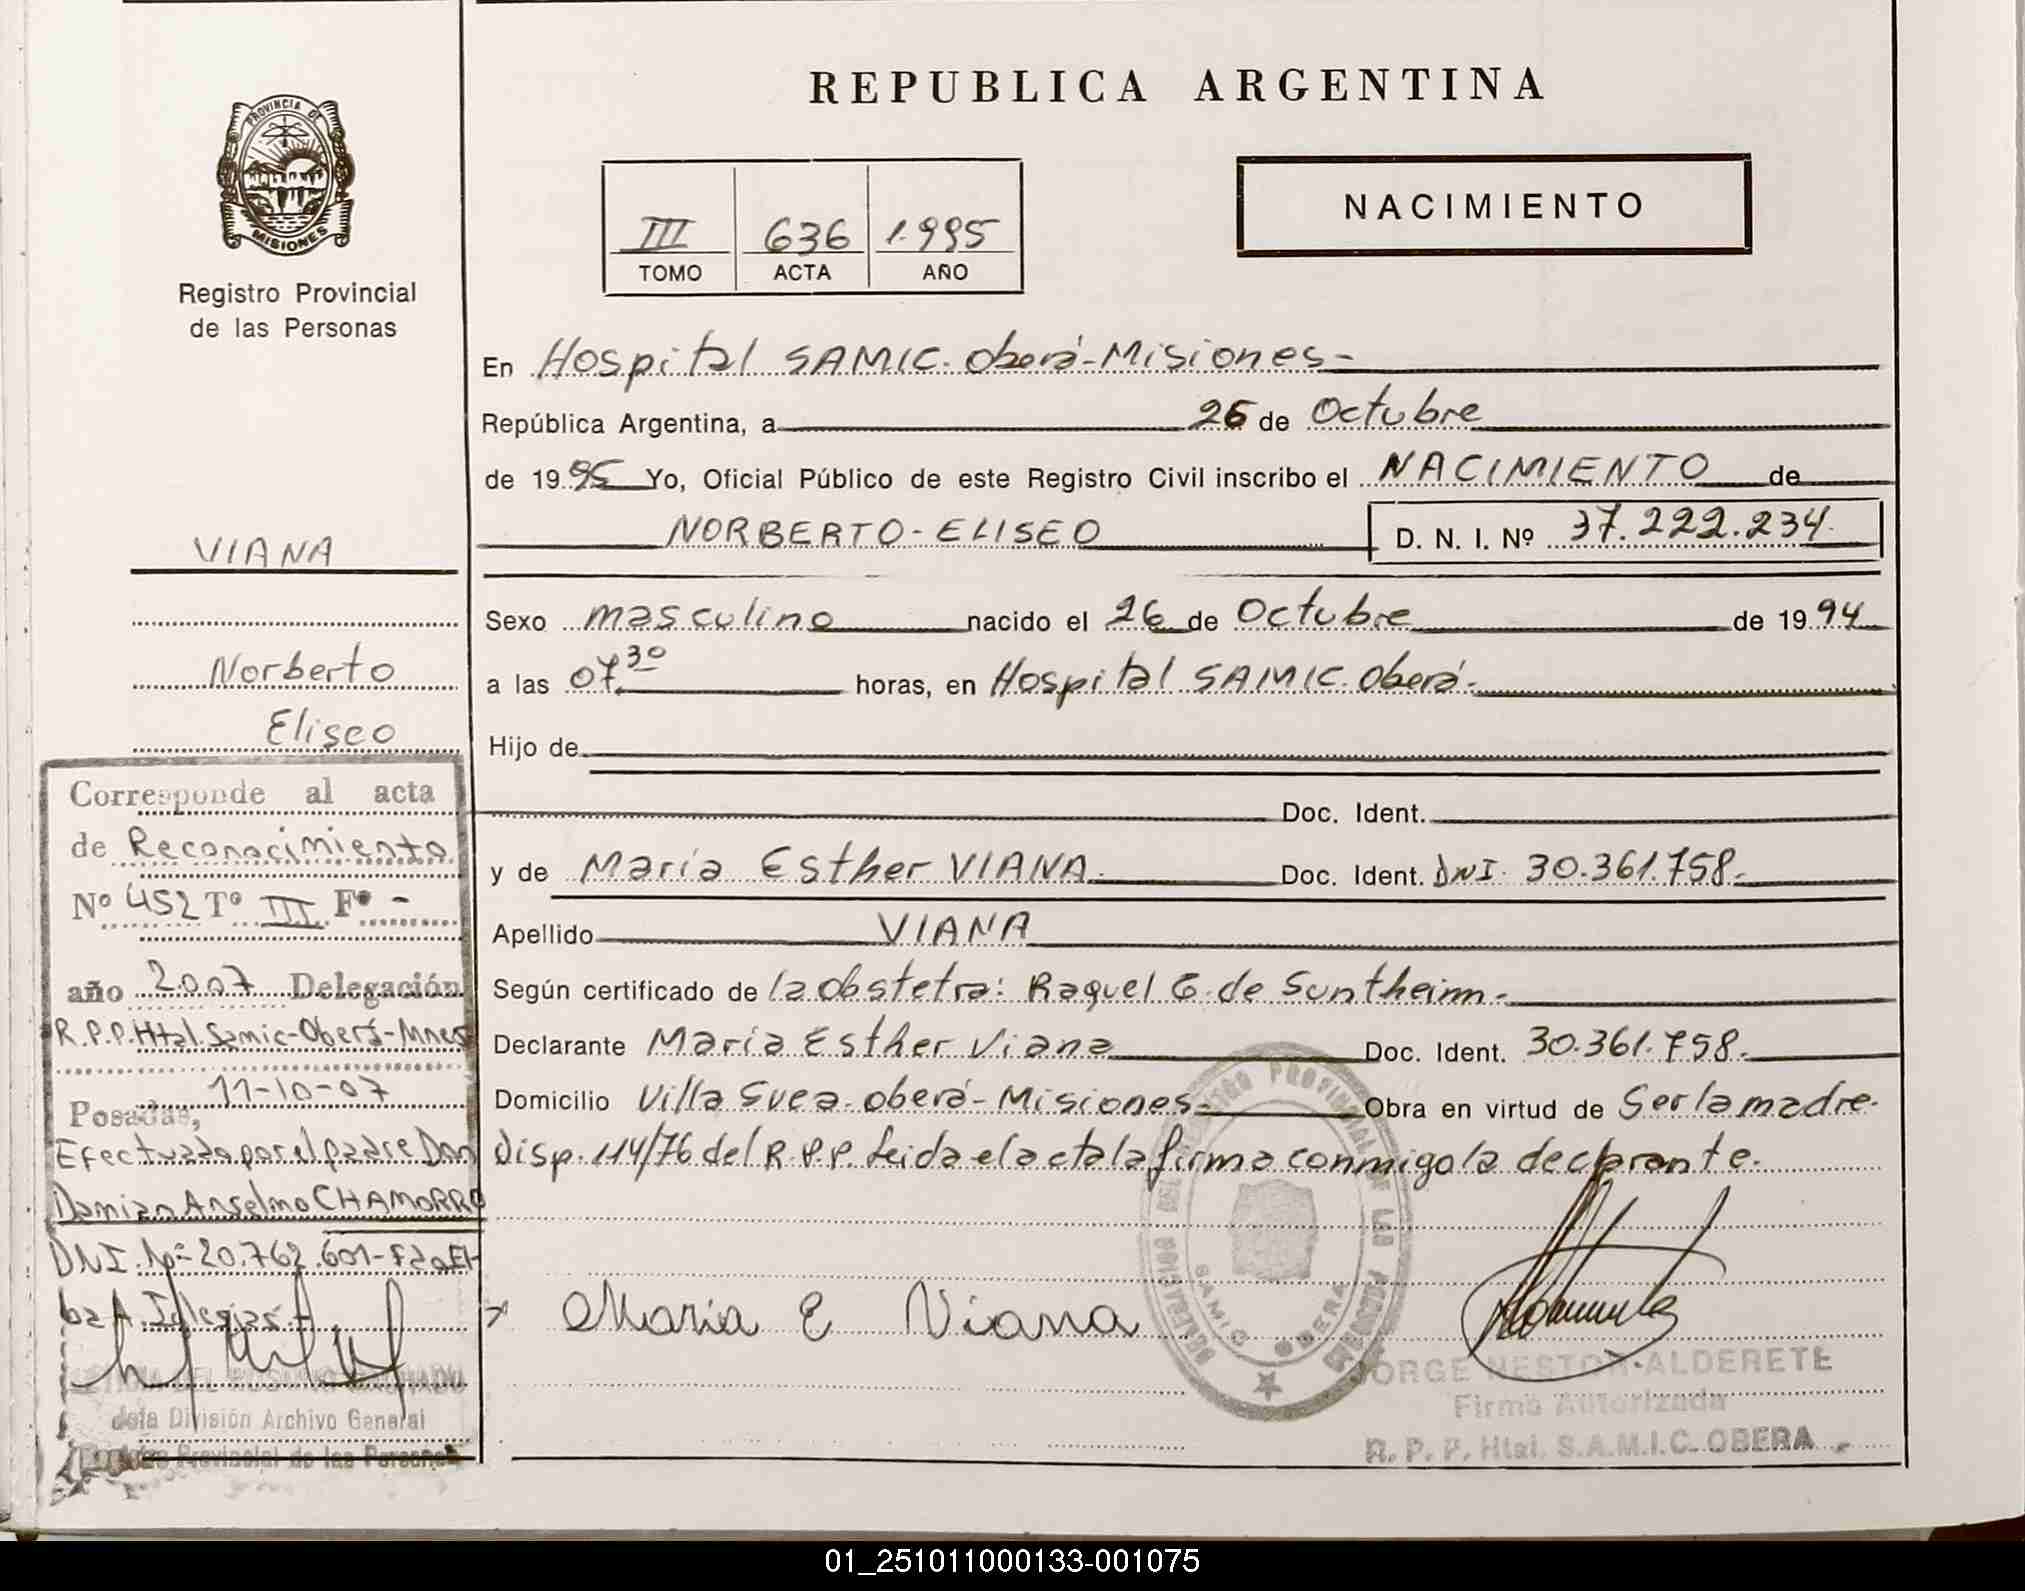 REPUBLICA ARGENTINA
PROVINCIA DE
MISIONES
Registro Provincial
de las Personas
III 636 1.995
TOMO ACTA AÑO
NACIMIENTO
En Hospital SAMIC. Oberá-Misiones-
República Argentina, a 26 de Octubre
de 1995 Yo, Oficial Público de este Registro Civil inscribo el NACIMIENTO de
NORBERTO-ELISEO D. N. I. Nº 37.222.234.
Sexo masculino nacido el 26 de Octubre de 1994
a las 07.30 horas, en Hospital SAMIC. Oberá.
Hijo de
Doc. Ident.
y de María Esther VIANA. Doc. Ident. DNI. 30.361.758.
Apellido VIANA
Según certificado de la obstetra: Raquel G. de Suntheim-
Declarante María Esther Viana Doc. Ident. 30.361.758.
Domicilio Villa Svea. oberá-Misiones- Obra en virtud de Ser la madre.
Disp. 114/76 del R.P.P. Leida el acta la firma conmigo la declarante.
Maria E Viana
REGISTRO PROVINCIAL DE LAS PERSONAS
SAMIC OBERA
JORGE NESTOR ALDERETE
Firma Autorizada
R. P. P. Htal. S.A.M.I.C. OBERA
VIANA
Norberto
Eliseo
Corresponde al acta
de Reconocimiento
Nº 452 Tº III Fº -
año 2.007 Delegación
R.P.P. Htal. Samic-Oberá-Mnes
Posadas, 11-10-07
Efectuado por el padre Don
Damian Anselmo CHAMORRO
DNI. Nº= 20.762.601-
ba A. Iglesias
DEL ROSARIO MACHADO
Jefa División Archivo General
Provincial de las Personas
01_251011000133-001075